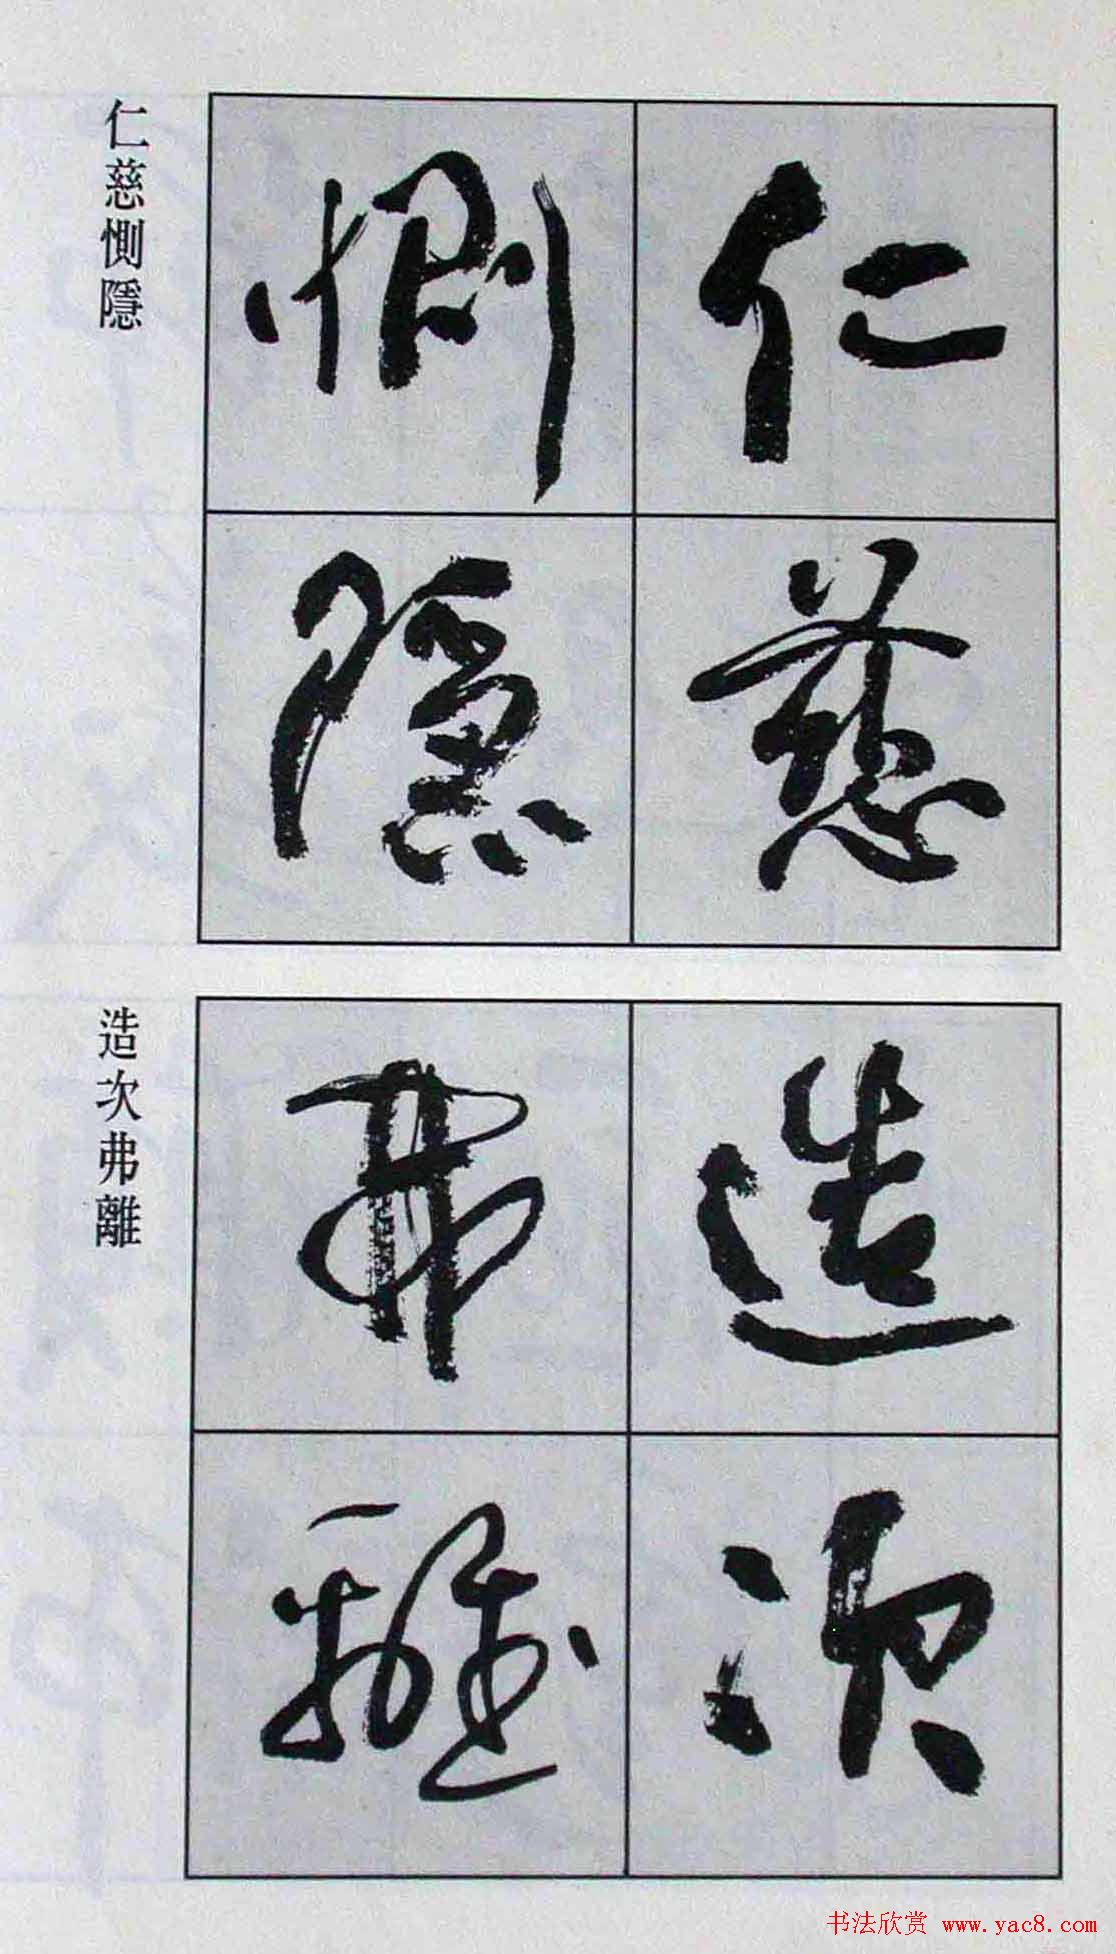 仁慈
惻隱
仁慈惻隱
造次
弗離
造次弗離
书法欣赏 www.yac8.com